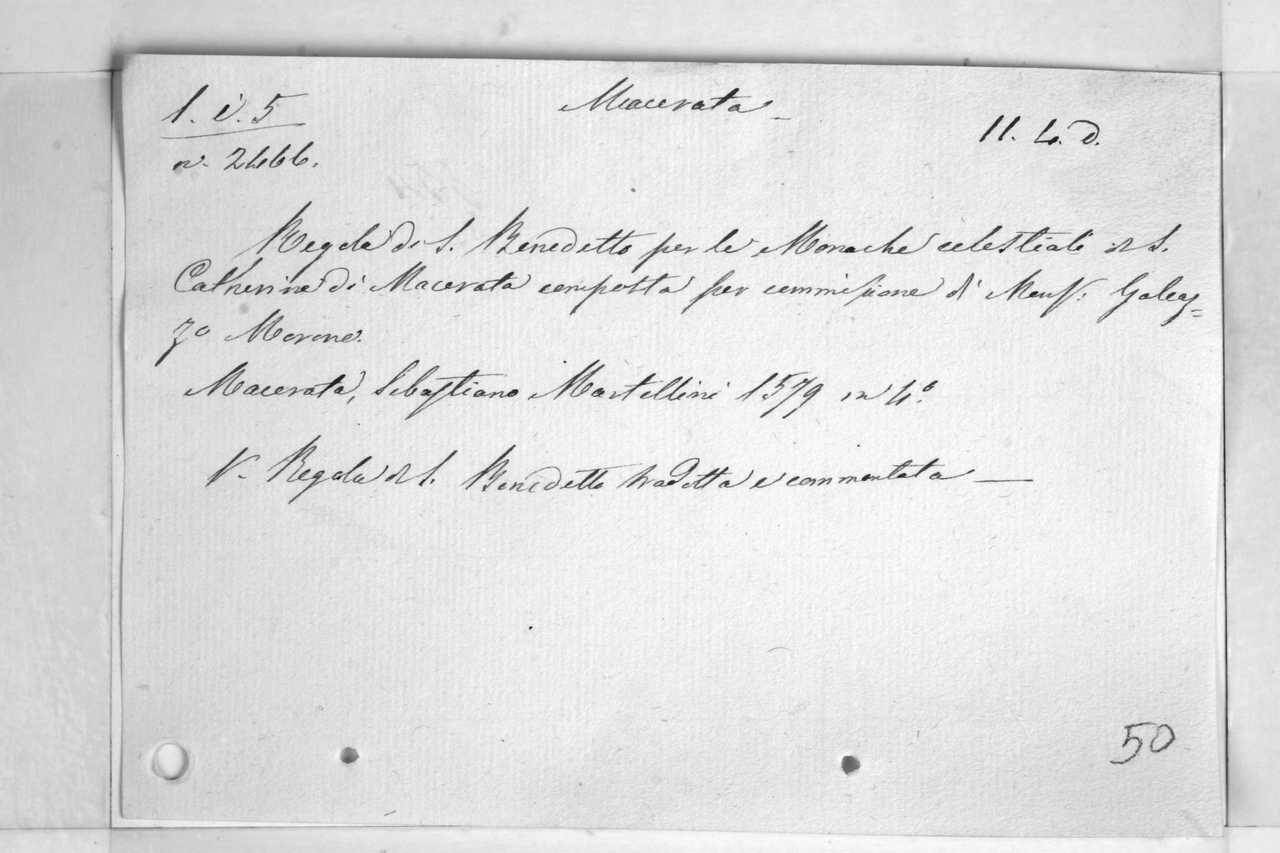 Macerata
1. i. 5
n. 2466.
11. 4. D.
Regola di S. Benedetto per le Monache celestiali di S.
Catherina di Macerata composta per commissione di Mons. Galeaz=
zo Morone.
Macerata, Sebastiano Martellini 1579 in 4°.
V. Regola di S. Benedetto tradotta e commentata —
50